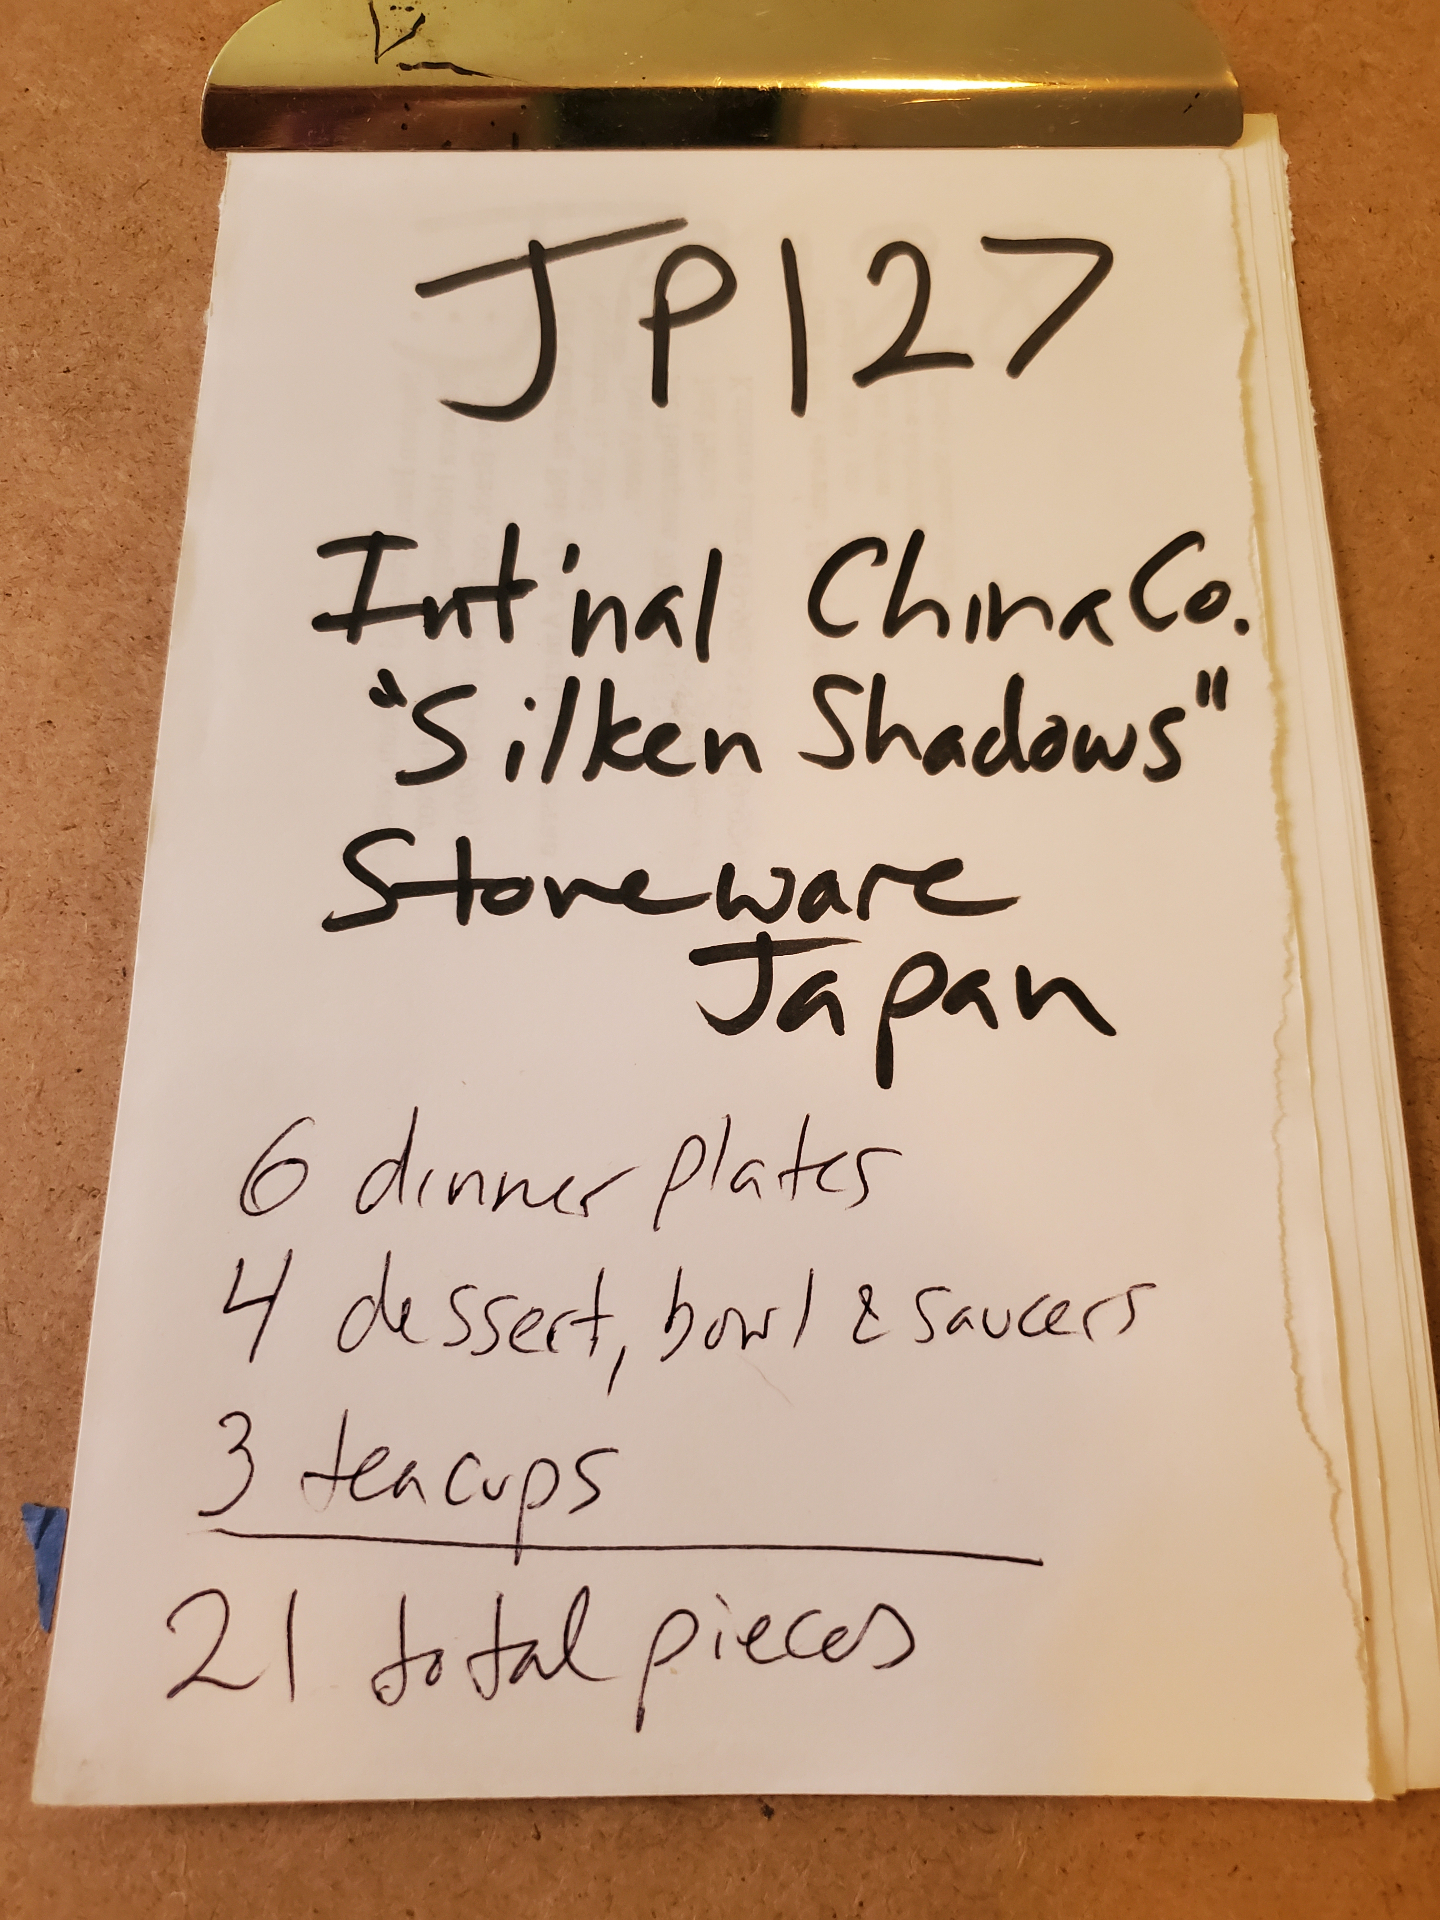 JP127
Int'nal China Co.
"Silken Shadows"
Stoneware
Japan
6 dinner plates
4 dessert, bowl & saucers
3 teacups
21 total pieces